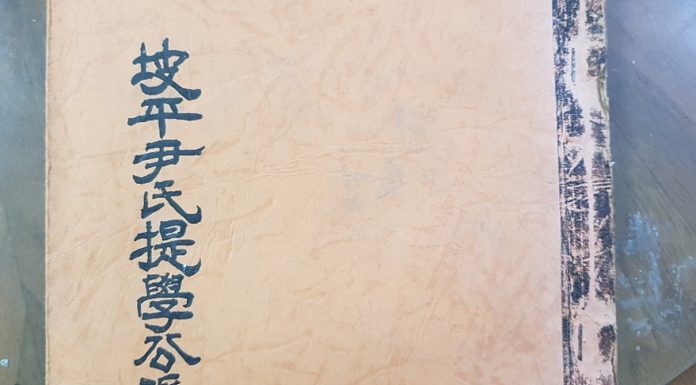 坡平尹氏提學公